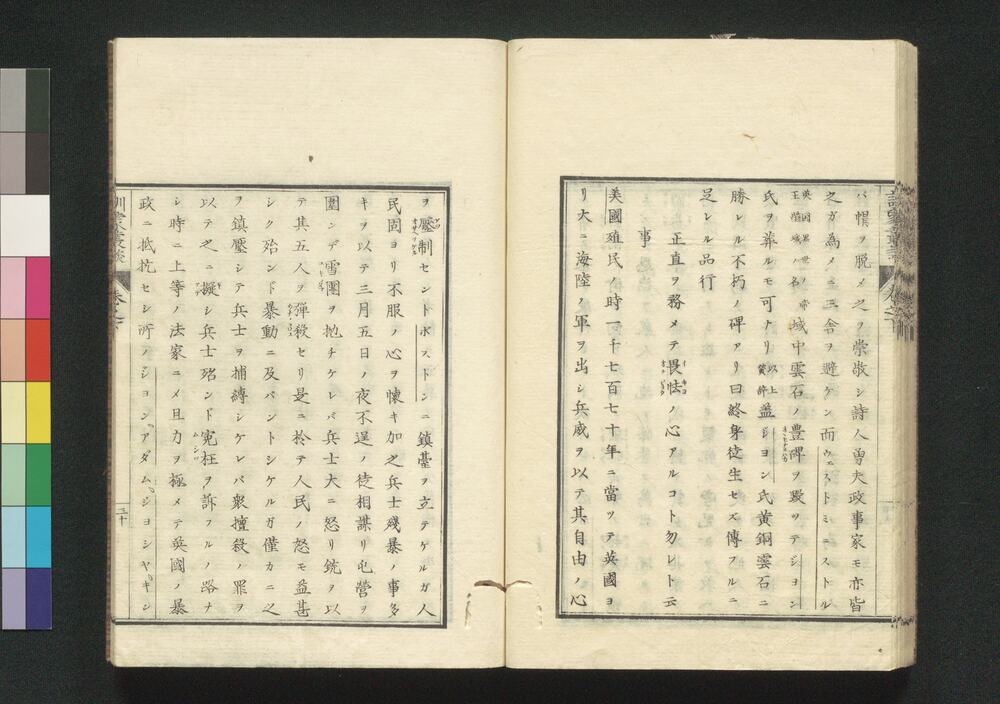 バ帽ヲ脱メ之ヲ崇敬シ詩人勇夫政事家モ亦皆
之ガ為メニ三舎ヲ避ケン而ウェストミニストル
英國累世ノ帝王墳域ノ名 城中雲石ノ豊碑ヲ毀ツテジョン
氏ヲ葬ルモ可ナリ 以上賛辞 蓋ジヨン氏黄銅雲石ニ
勝レル不朽ノ碑アリ曰終身徒生セズ傳フルニ
足レル品行
正直ヲ務メテ畏怯ノ心アルコト勿レト云
事
美國殖民ノ時一千七百七十年ニ當ツテ英國ヨ
リ大ニ海陸ノ軍ヲ出シ兵威ヲ以テ其自由ノ心
ヲ壓制セントボストンニ鎮臺ヲ立テケルガ人
民固ヨリ不服ノ心ヲ懐キ加之兵士殘暴ノ事多
キヲ以テ三月五日ノ夜不逞ノ徒相謀リ屯營ヲ
圍ンデ雪團ヲ抛チケレバ兵士大ニ怒リ銃ヲ以
テ其五人ヲ弾殺セリ是ニ於テ人民ノ怒モ益甚
シク殆ンド暴動ニ及バントシケルガ僅カニ之
ヲ鎮壓シテ兵士ヲ捕縛シケレバ衆擅殺ノ罪ヲ
以テ之ニ擬シ兵士殆ンド冤枉ヲ訴フルノ路ナ
シ時ニ上等ノ法家ニメ且力ヲ極メテ英國ノ暴
政ニ抵抗セシ所ノジョン、アダム、ジヨシヤ、キンシ
訓蒙叢談 巻之下 三十